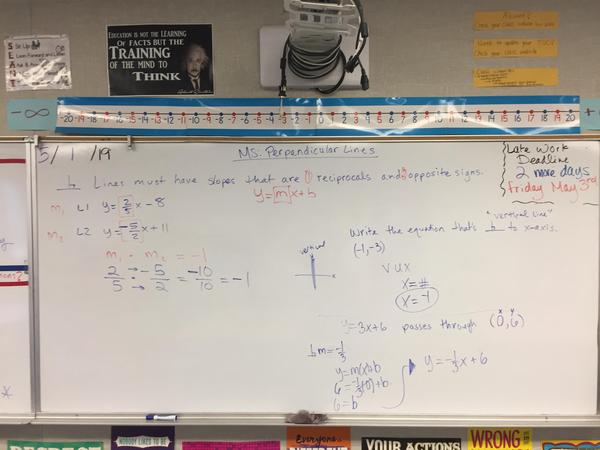 S Sit Up
EDUCATION IS NOT THE LEARNING
OF FACTS BUT THE
TRAINING
OF THE MIND TO
THINK
-∞
-20 -19 -18 -17 -16 -15 -14 -13 -12 -11 -10 -9 -8 -7 -6 -5 -4 -3 -2 -1 0 1 2 3 4 5 6 7 8 9 10 11 12 13 14 15 16 17 18 19 20
+
5/1/19
M5: Perpendicular Lines
Late Work
Deadline
2 more days
Friday May 3rd
⊥ Lines must have slopes that are ① reciprocals and ② opposite signs.
y=[m]x+b
m₁ L1 y=[2/5]x-8
m₂ L2 y=[-5/2]x+11
m₁ · m₂ = -1
2/5 · -5/2 = -10/10 = -1
"vertical line"
Write the equation that's ⊥ to x-axis.
(-1,-3)
vertical
x
VUX
x=#
x=-1
y=3x+6 passes through (0,6)
x y
⊥m=-1/3
y=m(x)+b
6=-1/3(0)+b
6=b
y=-1/3x+6
RESPECT
NOBODY LIKES TO BE
Everyone
YOUR ACTIONS
WRONG